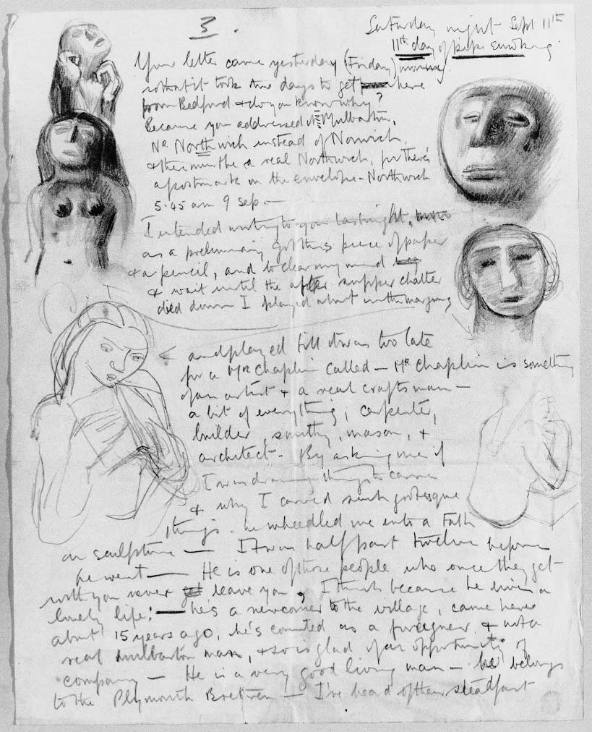 3.
Saturday night Sept 11th
11th day of pipe smoking
Your letter came yesterday (Friday) morning
so that it took two days to get here
from Bedford & do you know why?
Because you addressed it Mulbarton,
Nr Northwich instead of Norwich,
& there must be a real Northwich, for there's
a postmark on the envelope - Northwich
5.45 am 9 Sep. —
I intended writing to you last night,
as a preliminary got this piece of paper
& a pencil, and to clear my mind
& wait until the after supper chatter
died down I played about in the margins
and played till it was too late
for a Mr Chaplin called — Mr Chaplin is something
of an artist & a real craftsman —
a bit of everything, carpenter,
builder smithy, mason, &
architect — By asking me if
I was drawing things to carve
& why I carved such grotesque
things - he wheedled me into a talk
on sculpture — It was half past twelve before
he went — He is one of those people who once they get
with you never leave you, I think because he lives a
lonely life; — he's a newcomer to the village, came here
about 15 years ago, he's counted as a foreigner & not a
real mulbarton man, & so is glad of an opportunity of
company — He is a very good living man — he belongs
to the Plymouth Bretren — I've heard of their steadfast